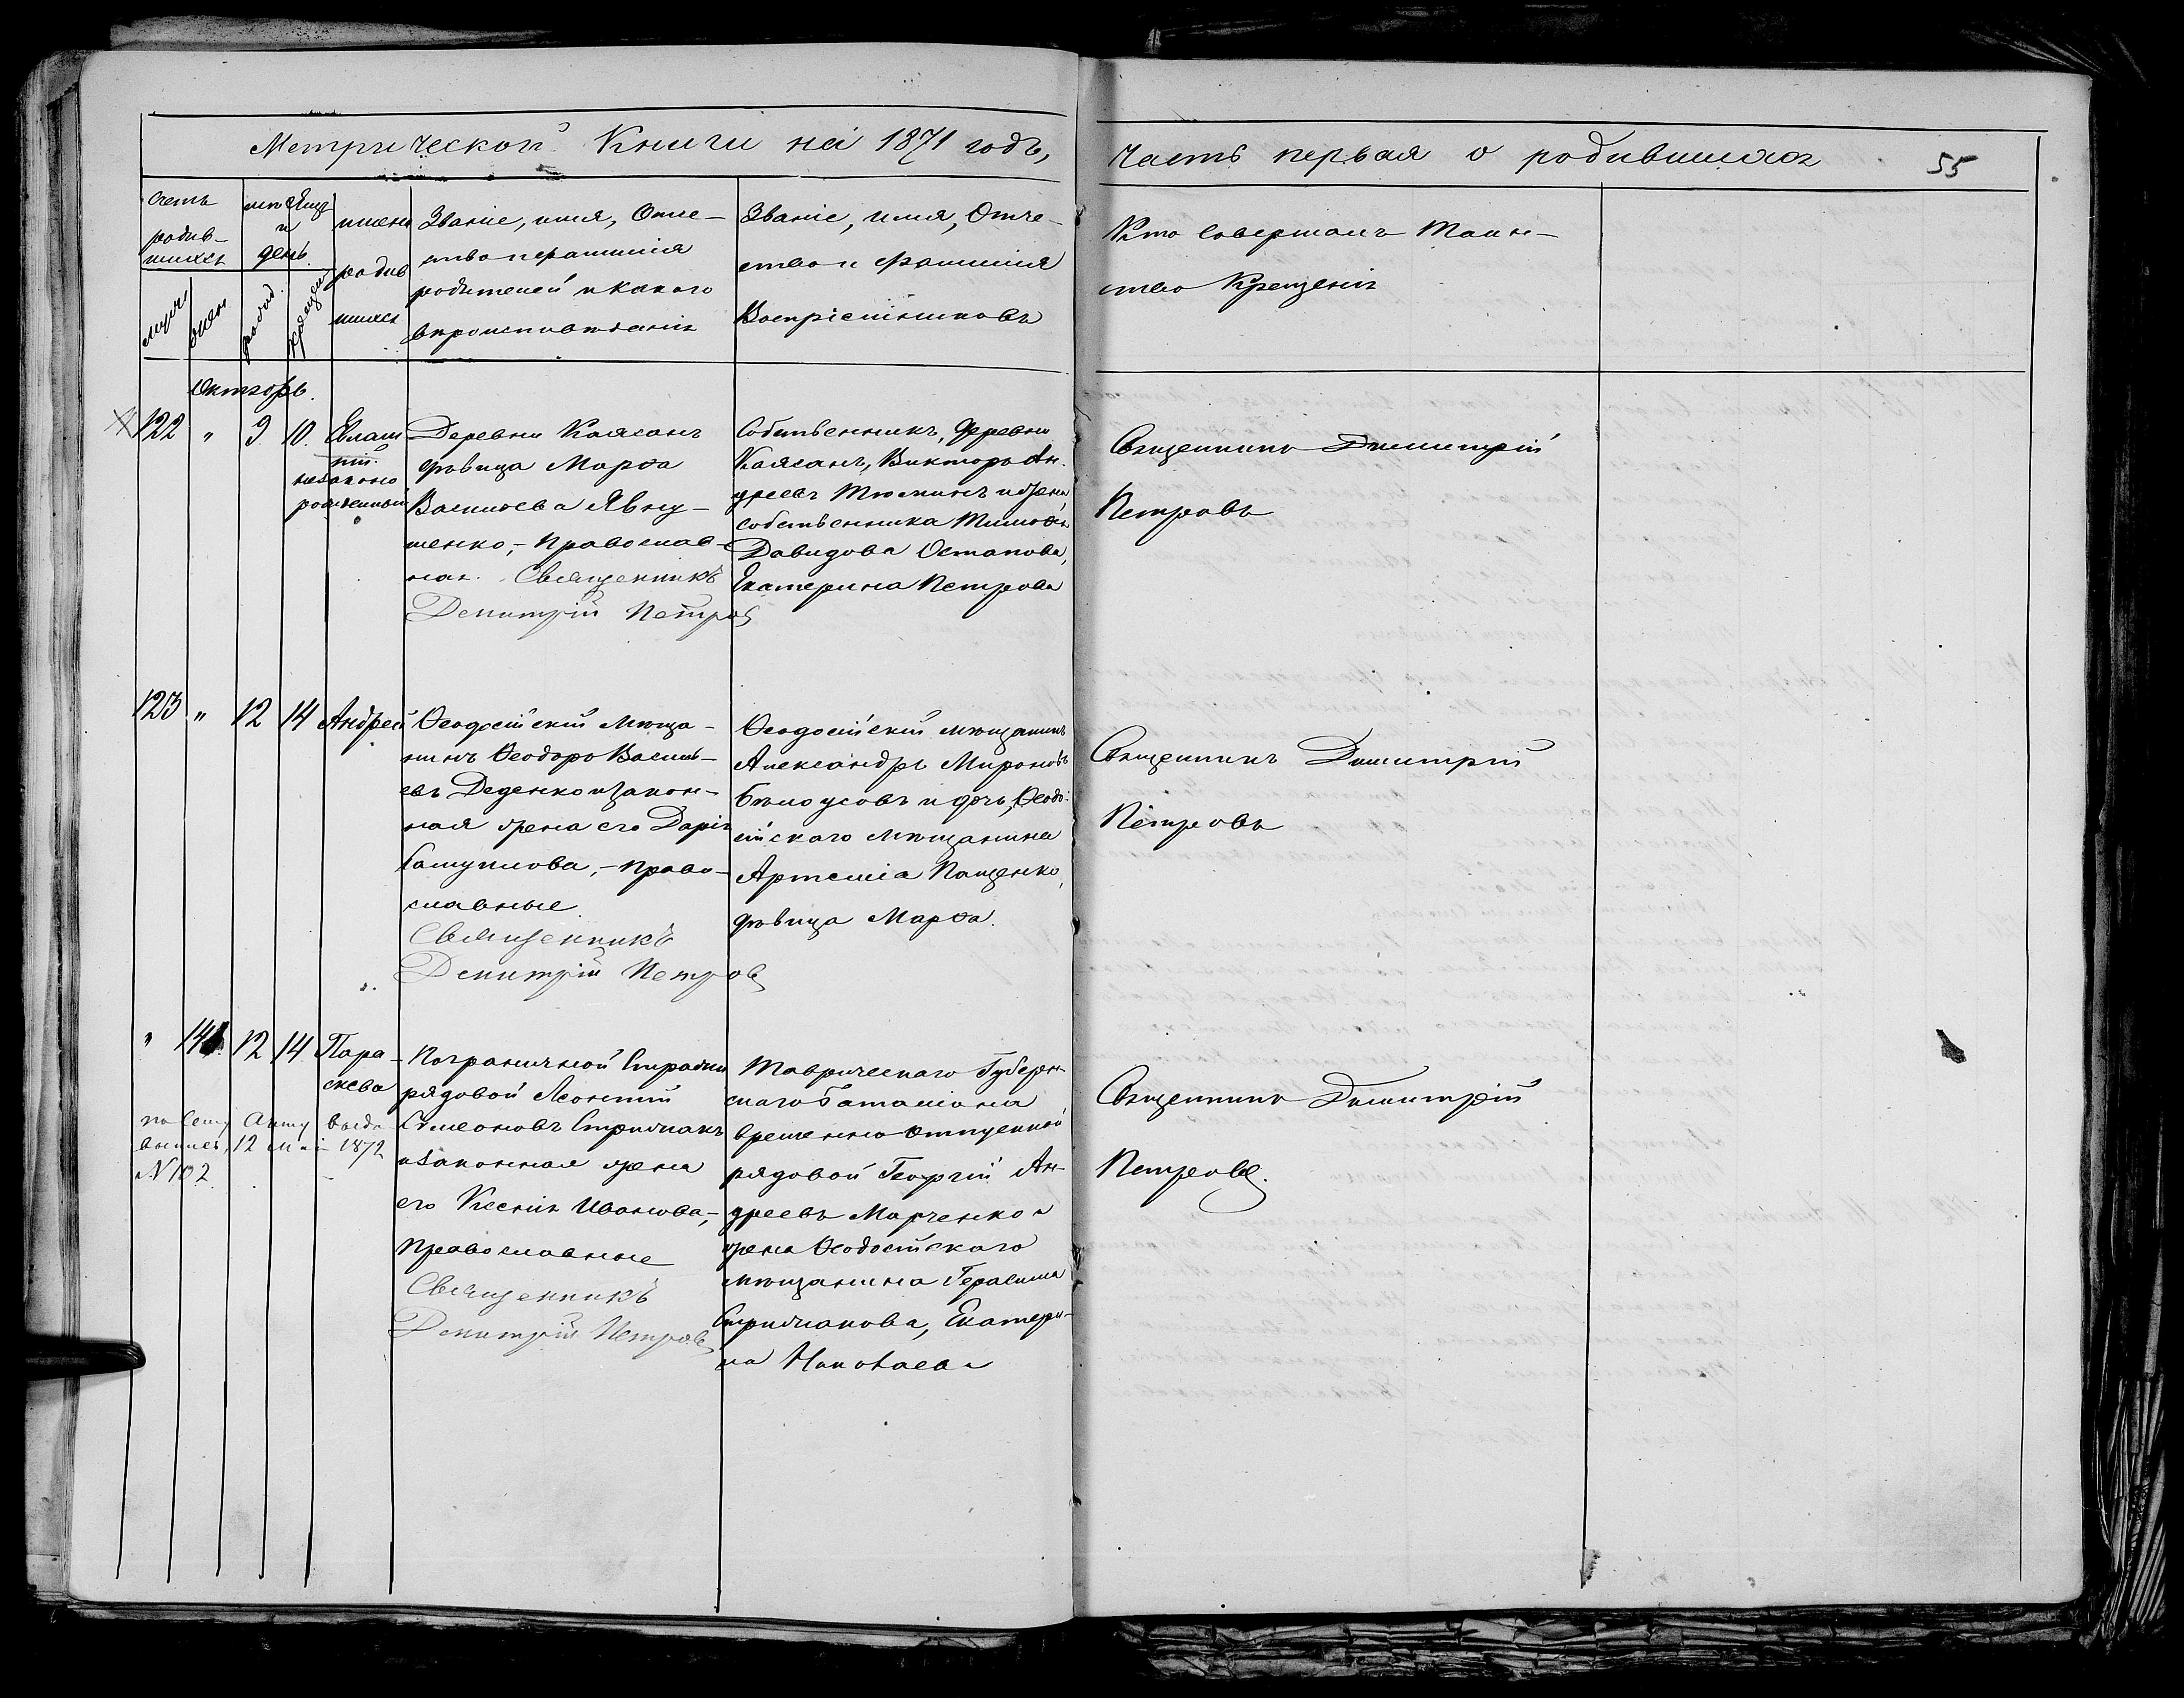 Метрической Книги на 1871 годъ,
часть первая о родившихся
55
счетъ родив-шихся
мѣсяцъ и день.
муж.
жен.
рожд.
крещен.
имена
родив
шихся
Званіе, имя, Отче-
ство и фамилія
родителей и какого
вѣроисповѣданія
Званіе, имя, Отче-
ство и фамилія
Воспріемниковъ
Кто совершалъ Таин-
ство Крещенія
Октябрь.
122 " 9 10. Евлам
пій.
незаконо
рожденный
Деревни Каясанъ
дѣвица Марѳа
Васильева Явту-
шенко, - Православ-
ная. Священникъ
Димитрій Петровъ
Собственникъ, деревни
Каясанъ, Викторъ Ан-
дреевъ Тюминъ и жена
собственника Тимоѳея
Давидова Остапова,
Екатерина Петрова
Священникъ Димитрій
Петровъ
123 " 12 14 Андрей
Ѳеодосійскій мѣща-
нинъ Ѳеодоръ Василь-
евъ Деденко и закон-
ная жена его Дарія
Самуилова, - право-
славные.
Священникъ
Димитрій Петровъ
Ѳеодосійскій мѣщанинъ
Александръ Мироновъ
Бѣлоусовъ и дочь, Ѳеодо-
сійскаго мѣщанина
Артемія Пащенко,
дѣвица Марѳа.
Священникъ Димитрій
Петровъ
" 12 14 Пара-
скева
по сему Акту выдан
выпись, 12 Мая 1872
№ 102.
Пограничной Стражи
рядовой Леонтій
Симеоновъ Стрижакъ
и законная жена
его Ксенія Иванова, -
Православные
Священникъ
Димитрій Петровъ
Таврическаго Губерн-
скаго баталіона
временно отпускной
рядовой Георгій Ан-
дреевъ Марченко и
жена Ѳеодосійскаго
мѣщанина Герасима
Стрижакова, Екатери-
на Николаева
Священникъ Димитрій
Петровъ.